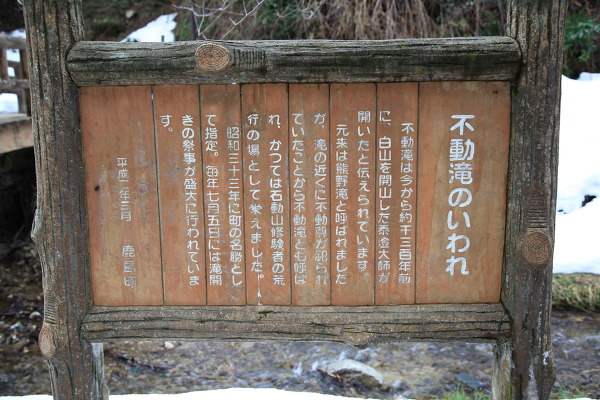 不動滝のいわれ
不動滝は今から約千三百年前
に、白山を開山した泰澄大師が
開いたと伝えられています。
元来は熊野滝と呼ばれました
が、滝の近くに不動尊が祀られ
ていたことから不動滝とも呼ば
れ、かつては石動山修験者の荒
行の場として栄えました。
昭和三十三年に町の名勝とし
て指定。毎年七月五日には滝開
きの祭事が盛大に行われていま
す。
平成 年三月 鹿島町